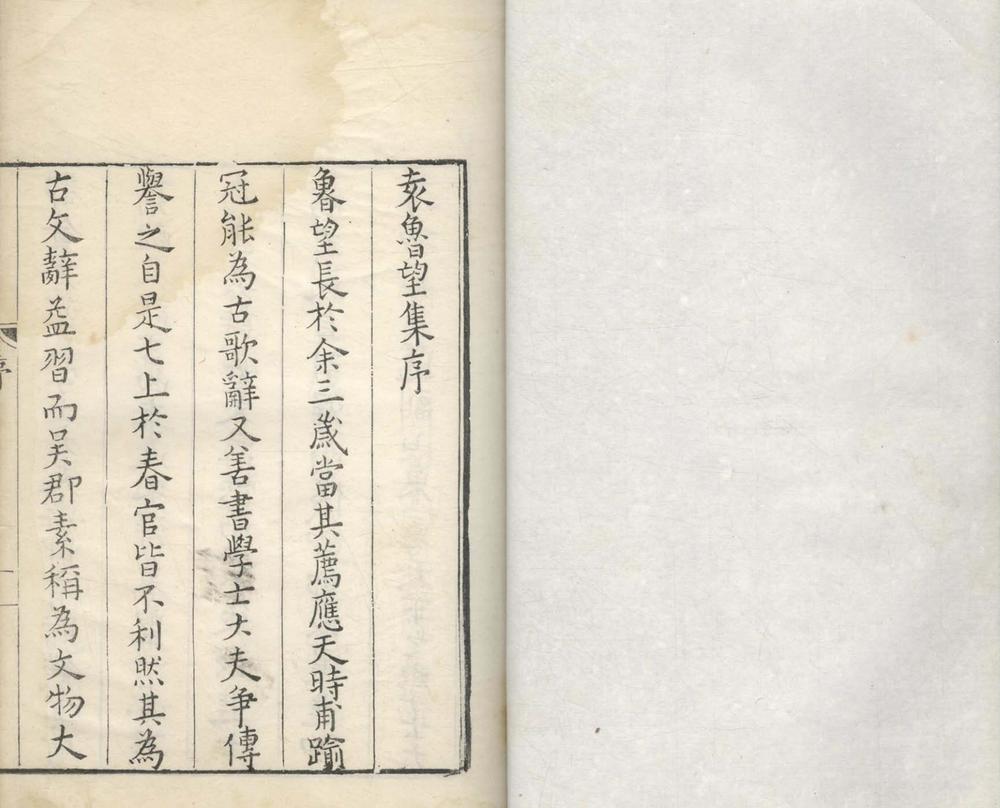 袁魯望集序
魯望長於余三歲當其薦應天時甫踰
冠能為古歌辭又善書學士大夫爭傳
譽之自是七上於春官皆不利然其為
古文辭益習而吳郡素稱為文物大
序